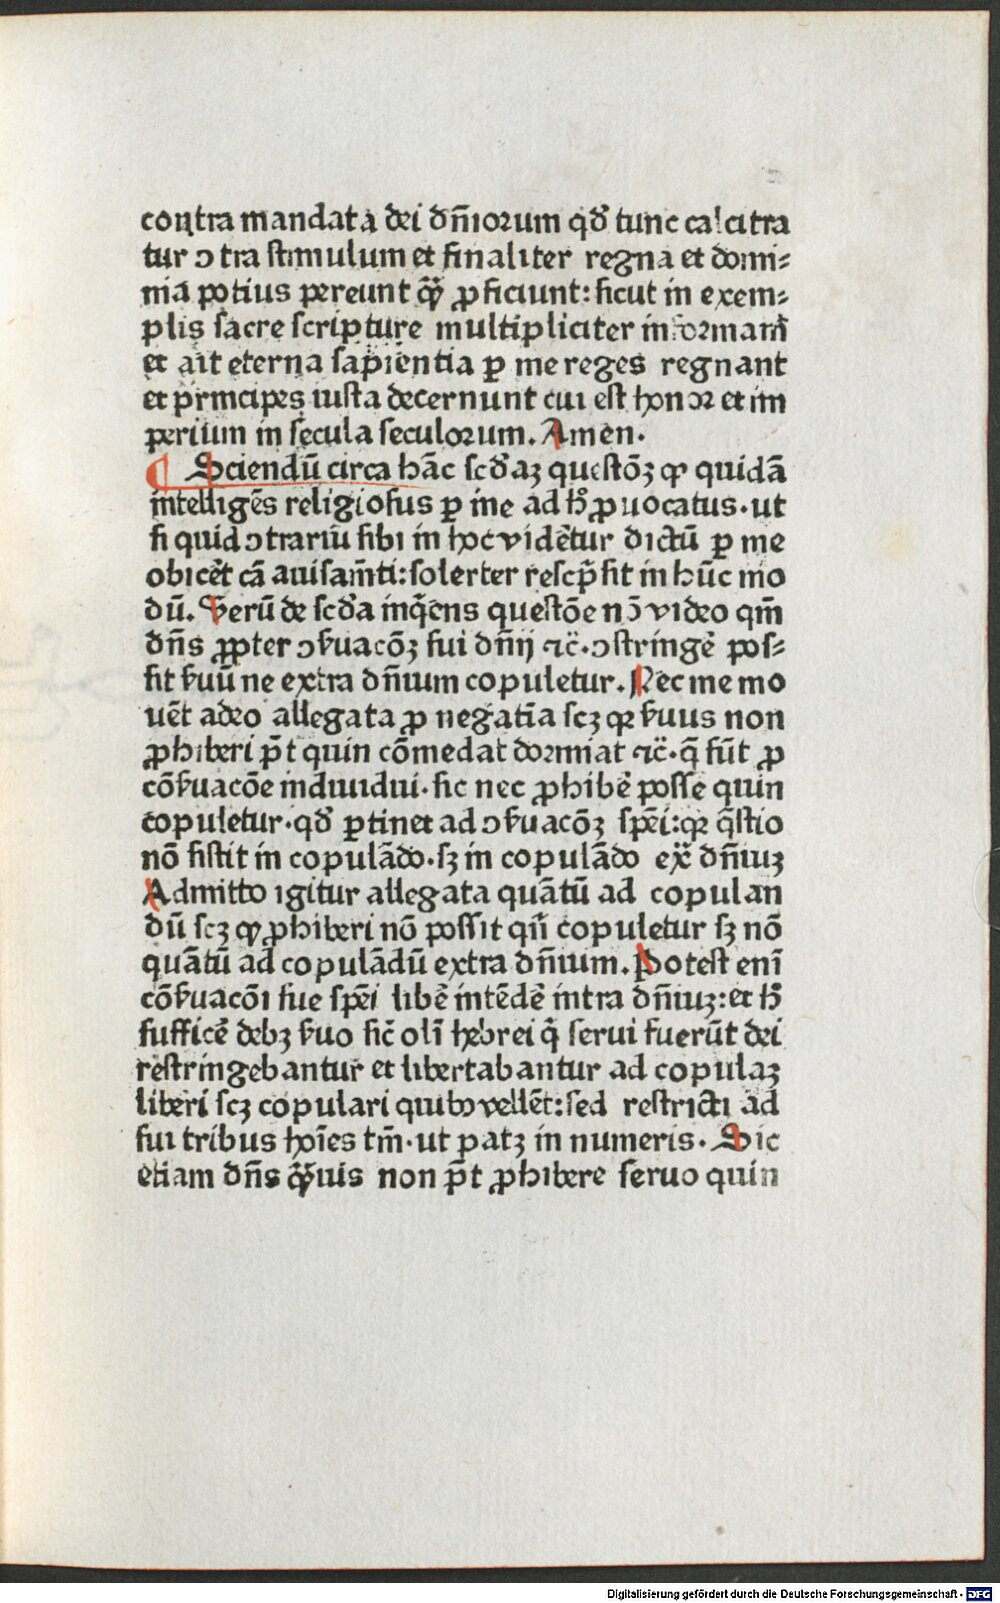 contra mandata dei dn̄iorum qď tunc calcitra
tur ↄtra stimulum et finaliter regna et domi⸗
nia potius pereunt q̄ꝫ ꝓficiunt: sicut in exem⸗
plis sacre scripture multipliciter informam̄
et ait eterna sapientia ꝑ me reges regnant
et principes iusta decernunt cui est honoꝛ et im
perium in secula seculoꝛum. Amen.
¶ Sciendū circa hāc scďaꝫ questōꝫ ꝙ quidā
intelligēs religiosus ꝑ me ad hͦ ꝓuocatus·ut
si quid ↄtrariū sibi in hoc vidētur dictū ꝑ me
obicēt cā auisam̄ti: solerter rescp̄sit in hūc mo
dū. Verū de scďa inq̄ens questōe nō video qm̄
dn̄s ꝓpter ↄẜuacōꝫ sui dn̄ij ⁊c̈·ↄstringē pos⸗
sit ẜuū ne extra dn̄ium copuletur. Nec me mo
uēt adeo allegata ꝓ negatīa scꝫ ꝙ ẜuus non
ꝓhiberi p̄t quin cōmedat dormiat ⁊c̈·q̄ sūt ꝓ
cōẜuacōe indiuidui·sic nec ꝓhibē posse quin
copuletur·qď ꝑtinet ad ↄẜuacōꝫ spēi: ꝙ q̄stio
nō sistit in copulādo·sꝫ in copulādo ex̄ dn̄iuꝫ
Admitto igitur allegata quātū ad copulan
dū scꝫ ꝙ ꝓhiberi nō possit qn̄ copuletur sꝫ nō
quātū ad copulādū extra dn̄ium. Potest enī
cōẜuacōi sue spēi libē intēdē intra dn̄iuꝫ: et hͦ
sufficē debꝫ ẜuo sic̄ olī hebrei q̄ serui fuerūt dei
restringebantur et libertabantur ad copulaꝫ
liberi scꝫ copulari quibꝰ vellēt: sed restricti ad
sui tribus hoīes tm̄·ut patꝫ in numeris. Sic
etiam dn̄s q̄ꝫuis non p̄t ꝓhibere seruo quin
Digitalisierung gefördert durch die Deutsche Forschungsgemeinschaft - DFG